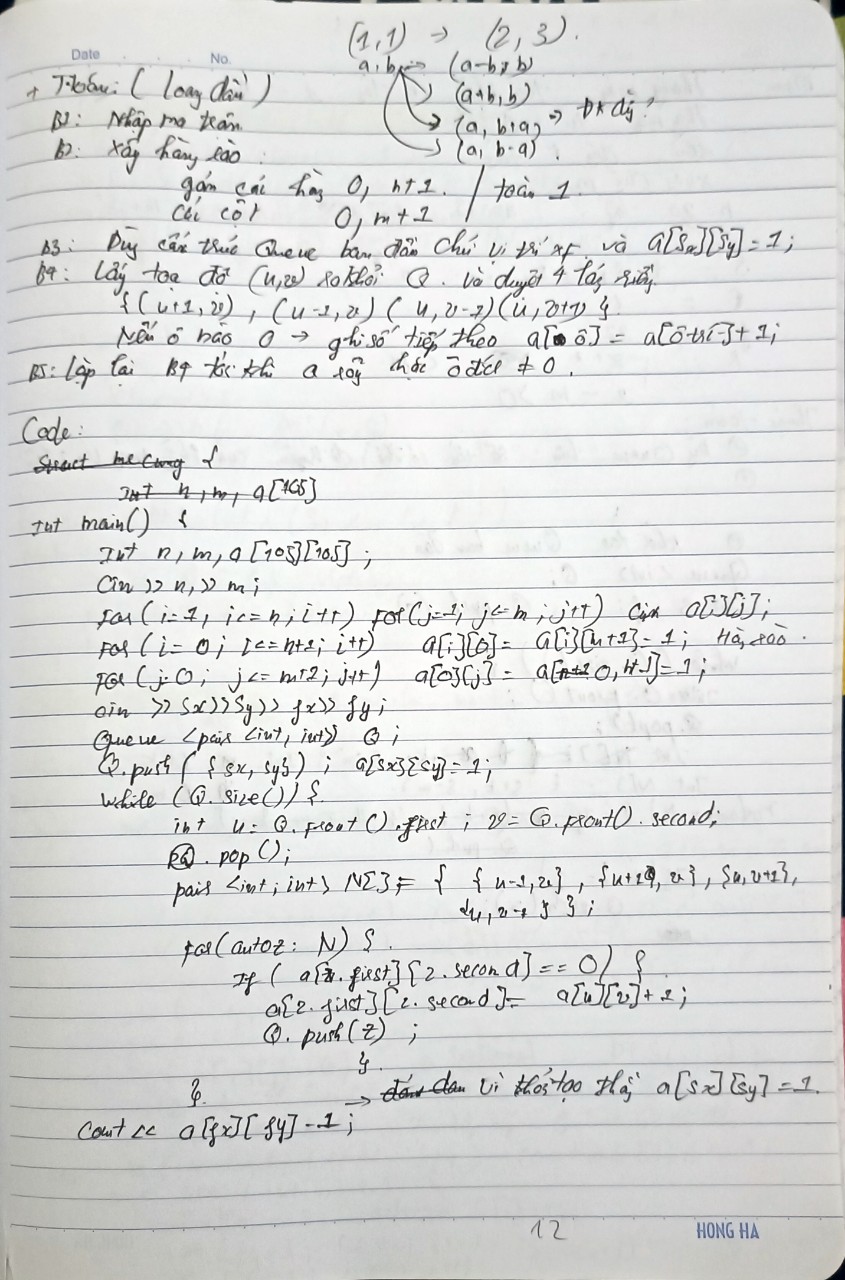 (1,1) → (2,3).
Date No.
a, b → (a-b, b)
+ T.toán: (loang dần)
(a+b, b)
B1: Nhập ma trận
(a, b+a) → ĐK dừng?
B2: Xây hàng rào:
(a, b-a)
gán các hàng 0, n+1. / toàn 1.
các cột 0, m+1
B3: Dùng cấu trúc Queue ban đầu chứa vị trí xf và a[sx][sy]=1;
B4: Lấy tọa độ (u,v) ra khỏi Q. và duyệt 4 láng giềng
{(u+1,v), (u-1,v) (u,v-1)(u,v+1)}.
Nếu ô nào 0 → ghi số tiếp theo a[ô] = a[ô trước]+1;
B5: Lặp lại B4 tới khi Q rỗng hoặc ô đích ≠ 0.
Code:
Struct me cung {
Int n, m, a[105]
Int main() {
Int n, m, a[105][105];
Cin >> n, >> m;
For(i=1, i<=n; i++) For(j=1; j<=m; j++) Cin a[i][j];
For(i=0; i<=n+1; i++) a[i][0]= a[i][m+1]=1; Hàng rào.
For(j=0; j<=m+1; j++) a[0][j]= a[n+1 0, n+1]=1;
cin >> sx>>sy>> fx>> fy;
Queue <pair <int, int>> Q;
Q.push({sx, sy}); a[sx][sy]=1;
while (Q.size()) {
int u= Q.front().first; v= Q.front().second;
Q.pop();
pair <int; int> N[]= { {u-1,v}, {u+1, v}, {u,v+1},
{u,v-1} };
For(auto z: N) {.
If ( a[z.first][z.second]==0) {
a[z.first][z.second]= a[u][v]+1;
Q.push(z) ;
}.
} → vì khởi tạo thấy a[sx][sy]=1.
Cout << a[fx][fy]-1;
12 HONG HA